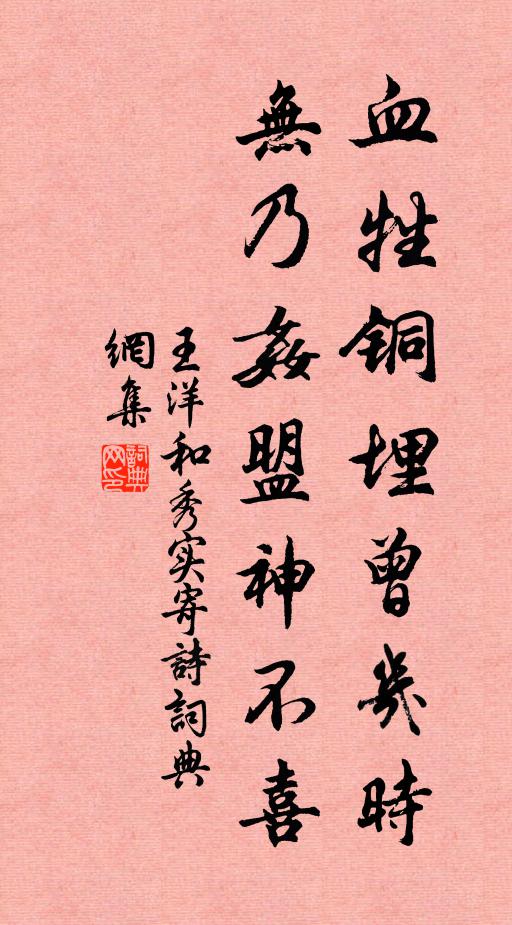 血牲铜埋曾幾時
無乃姦盟神不喜
王洋和秀实寄詩詞典
網集
詞典网印